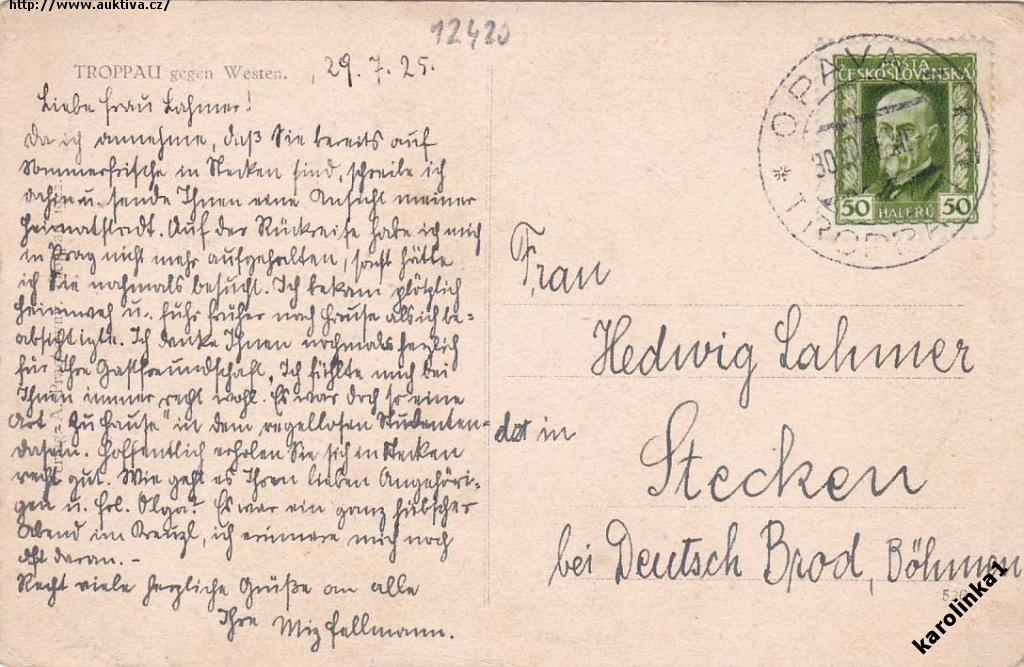 http://www.auktiva.cz/
12420
TROPPAU gegen Westen. , 29. 7. 25.
Liebe Frau Lahmer!
Da ich annehme, daß Sie bereits auf
Sommerfrische in Stecken sind, schreibe ich
dahin u. sende Ihnen eine Ansicht meiner
Heimatstadt. Auf der Rückreise habe ich mich
in Prag nicht mehr aufgehalten, sonst hätte
ich Sie nochmals besucht. Ich bekam plötzlich
Heimweh u. fuhr früher nach Hause als ich be-
absichtigte. Ich danke Ihnen nochmals herzlich
für Ihre Gastfreundschaft. Ich fühlte mich bei
Ihnen immer recht wohl. Es war doch so eine
Art "Zu Hause" in dem regellosen Studenten-
dasein. Hoffentlich erholen Sie sich in Stecken
recht gut. Wie geht es Ihren lieben Angehöri-
gen u. Frl. Olga? Es war ein ganz hübscher
Abend im Kreuzl, ich erinnere mich noch
oft daran. -
Recht viele herzliche Grüße an alle
Ihre Miz Fellmann.
OPAVA
TROPPAU
30
POŠTA
ČESKOSLOVENSKÁ
50 HALÉŘŮ 50
Frau
Hedwig Lahmer
in
Stecken
bei Deutsch Brod, Böhmen
karolinka1